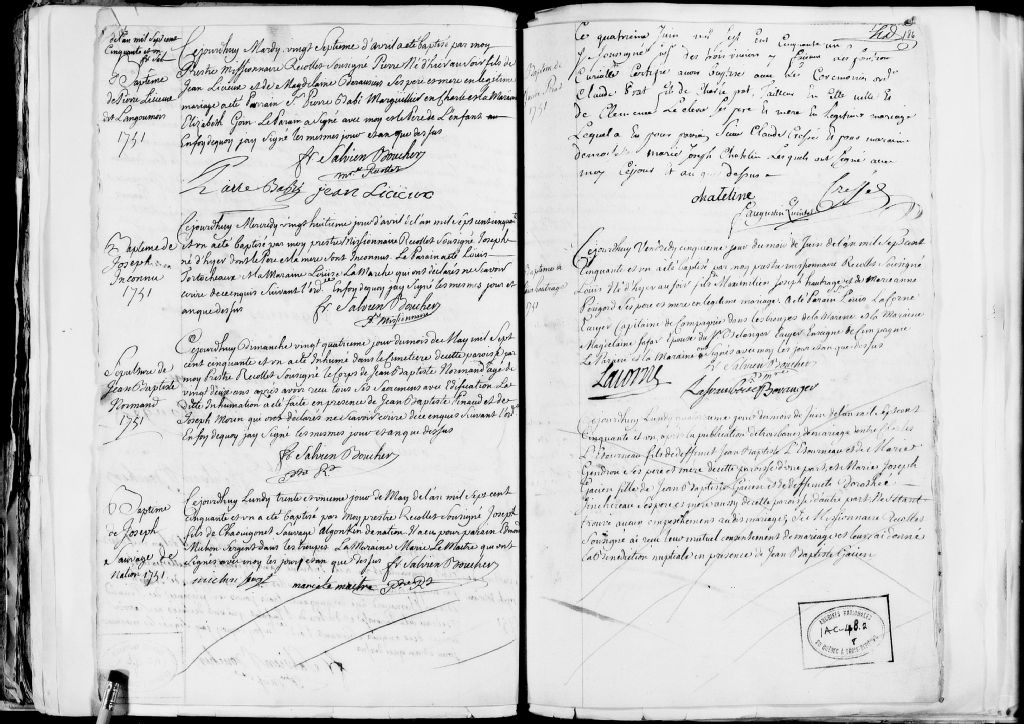 de l'an mil Sept cent
Cinquante et un
fr Sal
Baptême
de Pierre Licieux
dit Langoumois
1751
Cejourdhuy Mardy vingt Septieme d'avril a été baptisé par moy
Prestre Missionnaire Recollet Soussigné Pierre Né d'hier au Soir fils de
Jean Licieux et de Magdelaine Ses pere et mere en legitime
mariage a été Parrain Sr Pierre Babi Marguillier en Charge et la Maraine
Elizabeth Le Parain a Signé avec moy et le Pere de l'Enfant
En foy dequoy jay Signé les mesmes jour et an que dessus
fr Salvien Boucher
mre Recollet
Pierre Babi Jean Licieux
Baptême de
Joseph
Inconnu
1751
Cejourdhuy Mercredy vingt huitieme jour d'avril de l'an mil Sept cent cinquante
et un a été baptisé par moy prestre Missionnaire Recollet Soussigné Joseph
né d'hyer dont le Pere et la mere Sont Inconnus. Le Parain a été Louis
Portocheaux et la Maraine Louise La Marche qui ont déclarés ne Savoir
écrire de ce enquis Suivant l'ordce. En foy dequoy jay Signé les mesmes jour et
an que dessus
fr. Salvien Boucher
Pr Missionnaire
Sepulture de
Jean Baptiste
Normand
1751
Cejourdhuy Dimanche vingt quatrieme jour du mois de May mil Sept
cent cinquante et un a été Inhumé dans le Cimetiere de cette paroisse par
moy Prestre Recollet Soussigné le Corps de Jean Baptiste Normand agé de
vingt deux ans aprés avoir receu tous Ses Sacremens avec Edification La
ditte Inhumation a été faite en presence de Jean Baptiste Pinaud et de
Joseph Morin qui ont déclarés ne Scavoir écrire de ce enquis Suivant l'ordce
En foy dequoy jay Signé les mesmes jour et an que dessus
fr Salvien Boucher
Pre Rt
Baptême
de Joseph
Sauvage de
Nation 1751
Cejourdhuy Lundy trente et unieme jour de May de l'an mil Sept cent
Cinquante et un a été baptisé par moy prestre Recollet Soussigné Joseph
fils de Chaouigonet Sauvage algonkin de nation. Il a eu pour parain
Michon Sergent dans les troupes. La Maraine Marie Le Maitre qui ont
Signés avec moy les jour et an que dessus fr Salvien Boucher
michon marie Le maitre Pre Rt
Baptême de
1751
Ce quatrieme Juin mil Sept Cent Cinquante un
Je Soussigné des trois rivieres y faisant les fonction
Curialle Certifie avoir baptisé avec Les Ceremonies ordre
Claude Prat fils de Charle prat, Tailleur En cette ville Et
de Clemence Leclerc Ses pere et mere En Legitime mariage
Lequel a Eu pour parain Sieur Claude Cressé et pour maraine
demoiselle marie Joseph Chatelin Lesquels ont Signé avec
moy Ce jour et an que dessus
chateline Cressé
f augustin Quintal
Baptême de
1751
Cejourdhuy Vendredy cinquieme jour du mois de Juin de l'an mil Sept cent
Cinquante et un a été baptisé par moy prestre missionnaire Recollet Soussigné
Louis Né d'hyer au Soir fils Maximilien Joseph hautrage et de Marie anne
Pougard Ses pere et mere en legitime mariage. a été Parain Louis La Corne
Ecuyer Capitaine de Compagnie dans les troupes de la Marine et la Maraine
Magdelaine Epouse du Sr Belanger Ecuyer Enseigne de Compagnie
Le Parain et la Maraine Signés avec moy les jour et an que dessus
fr Salvien Boucher
Lacorne
Cejourdhuy Lundy jour du mois de Juin de l'an mil Sept cent
Cinquante et un, aprés la publication de trois bancs de mariage entre Charles
L'Etourneau fils de deffunt Jean Baptiste L'Etourneau et de Marie
Gendron Ses pere et mere de cette paroisse d'une part, et Marie Joseph
Gacien fille de Jean Baptiste Gacien et de deffunte Dorothée
Ses pere et mere aussy de cette paroisse d'autre part Ne S'étant
trouvé aucun empeschement au dt mariage, Je Missionnaire Recollet
Soussigné ai receu leur mutuel consentement de mariage et leur ai donné
la Bénédiction nuptiale en présence de Jean Baptiste Gacien
ARCHIVES NATIONALES
1AC-48.2
DU QUÉBEC À TROIS-RIVIÈRES